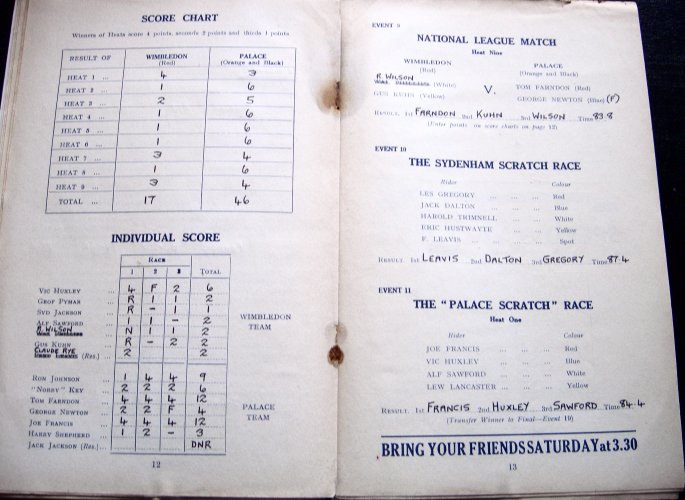 SCORE CHART
Winners of Heats score 4 points, seconds 2 points and thirds 1 points
RESULT OF WIMBLEDON (Red) PALACE (Orange and Black)
HEAT 1 ... 4 3
HEAT 2 ... 1 6
HEAT 3 ... 2 5
HEAT 4 ... 1 6
HEAT 5 ... 1 6
HEAT 6 ... 1 6
HEAT 7 ... 3 4
HEAT 8 ... 1 6
HEAT 9 ... 3 4
TOTAL ... 17 46
INDIVIDUAL SCORE
RACE
1 2 3 TOTAL
VIC HUXLEY ... 4 F 2 6
GEOF PYMAR ... R 1 1 2
SYD JACKSON ... R - 1 1
ALF SAWFORD ... 1 1 - 2
R. WILSON N 1 1 2
GUS KUHN ... R - 2 2
CLAUDE RYE (Res.) 2 2
WIMBLEDON
TEAM
RON JOHNSON ... 1 4 4 9
"NOBBY" KEY ... 2 2 2 6
TOM FARNDON ... 4 4 4 12
GEORGE NEWTON ... 2 2 F 4
JOE FRANCIS ... 4 4 4 12
HARRY SHEPHERD ... 1 2 - 3
JACK JACKSON (Res.)... DNR
PALACE
TEAM
12
EVENT 9
NATIONAL LEAGUE MATCH
Heat Nine
WIMBLEDON PALACE
(Red) (Orange and Black)
R. WILSON
(White) V. TOM FARNDON (Red)
GUS KUHN (Yellow) GEORGE NEWTON (Blue) (F)
RESULT. 1st FARNDON 2nd KUHN 3rd WILSON Time 83.8
(Enter points on score charts on page 12)
EVENT 10
THE SYDENHAM SCRATCH RACE
Rider Colour
LES GREGORY ... ... ... Red
JACK DALTON ... ... ... Blue
HAROLD TRIMNELL ... ... White
ERIC HUSTWAYTE ... ... Yellow
F. LEAVIS ... ... ... Spot
RESULT. 1st LEAVIS 2nd DALTON 3rd GREGORY Time 87.4
EVENT 11
THE "PALACE SCRATCH" RACE
Heat One
Rider Colour
JOE FRANCIS ... ... ... Red
VIC HUXLEY ... ... ... Blue
ALF SAWFORD ... ... ... White
LEW LANCASTER ... ... ... Yellow
RESULT. 1st FRANCIS 2nd HUXLEY 3rd SAWFORD Time 84.4
(Transfer Winner to Final—Event 19)
BRING YOUR FRIENDS SATURDAY at 3.30
13